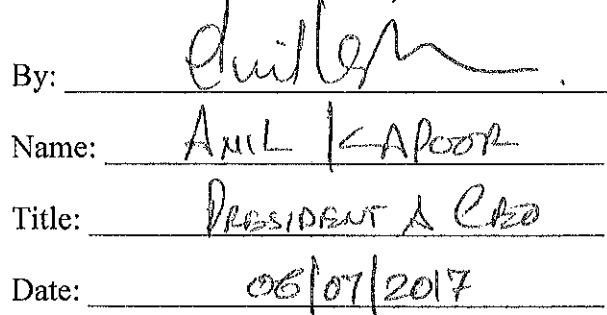 By:
Name: ANIL KAPOOR
Title: PRESIDENT & CEO
Date: 06/07/2017